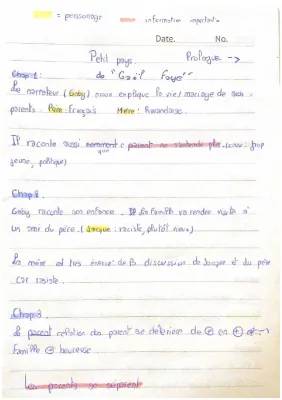 = personnage = information importante
Date. No.
Petit pays Prologue ->
de "Gaël Faye"
Chap 1:
Le narrateur (Gaby) nous explique le vie/mariage de ses
parents. Père: Français Mère: Rwandaise.
Il raconte aussi comment que parent ne s'entende plus. (cause: trop
jeune, politique)
Chap 2.
Gaby raconte son enfance. La famille va rendre visite à
un ami du père. (Jacque: raciste, plutôt vieux)
La mère et très énervé de la discussion de Jacque et du père
car raciste.
Chap 3.
parent relation des parent se détériore de en
Famille heureuse
Les parents se séparent